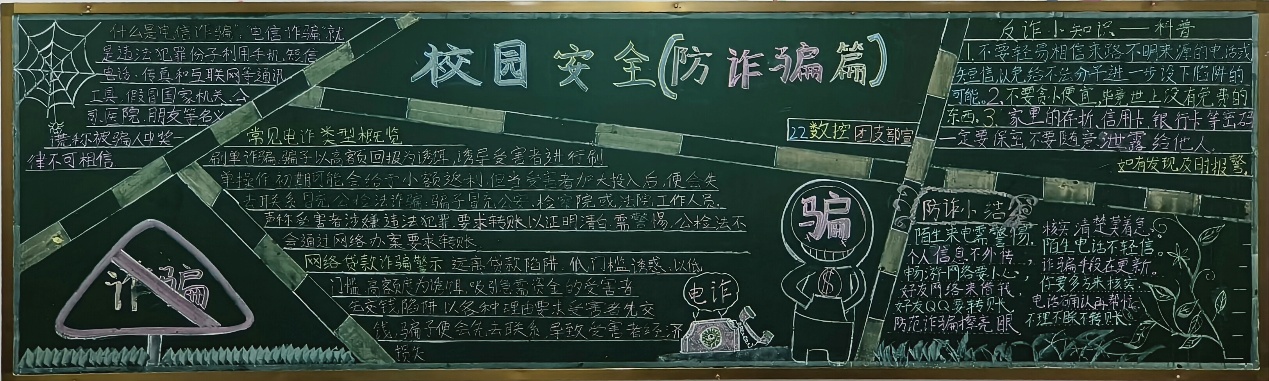 校园安全(防诈骗篇)
22数控 团支部宣
什么是电信诈骗"电信诈骗"就
是违法犯罪份子利用手机.短信
电话.传真和互联网等通讯
工具,假冒国家机关、公
司.医院.朋友等名义
谎称被骗人中奖
律不可相信
常见电诈类型概览
刷单诈骗.骗子以高额回报为诱饵,诱导受害者进行刷
单操作初期可能会给予小额返利,但当受害者加大投入后,便会失
去联系冒充公检法诈骗,骗子冒充公安.检察院或法院工作人员.
声称受害者涉嫌违法犯罪要求转账以证明清白需警惕,公检法不
会通过网络办案要求转账.
网络贷款诈骗警示 远离贷款陷阱.低门槛诱惑.以低
门槛,高额度为诱饵,吸引急需资金的受害者
先交钱陷阱以各种理由要求受害者先交
钱,骗子便会失去联系导致受害者经济
损失
诈骗
电诈
骗
$
反诈小知识——科普
1.不要轻易相信来路不明来源的电话或
短信,以免给不法分子进一步设下陷阱的
可能.2.不要贪小便宜,毕竟世上没有免费的
东西.3.家里的存折.信用卡.银行卡等密码
一定要保密,不要随意泄露给他人.
如有发现及时报警.
防诈小结
陌生来电需警惕,
个人信息不外传
畅游网络要小心,
好友网络来借钱,
好友QQ要转账
防范诈骗擦亮眼
核实清楚莫着急.
陌生电话不轻信.
诈骗手段在更新.
仔要多方来核实.
电话确认再帮忙.
不理不睬不转账.